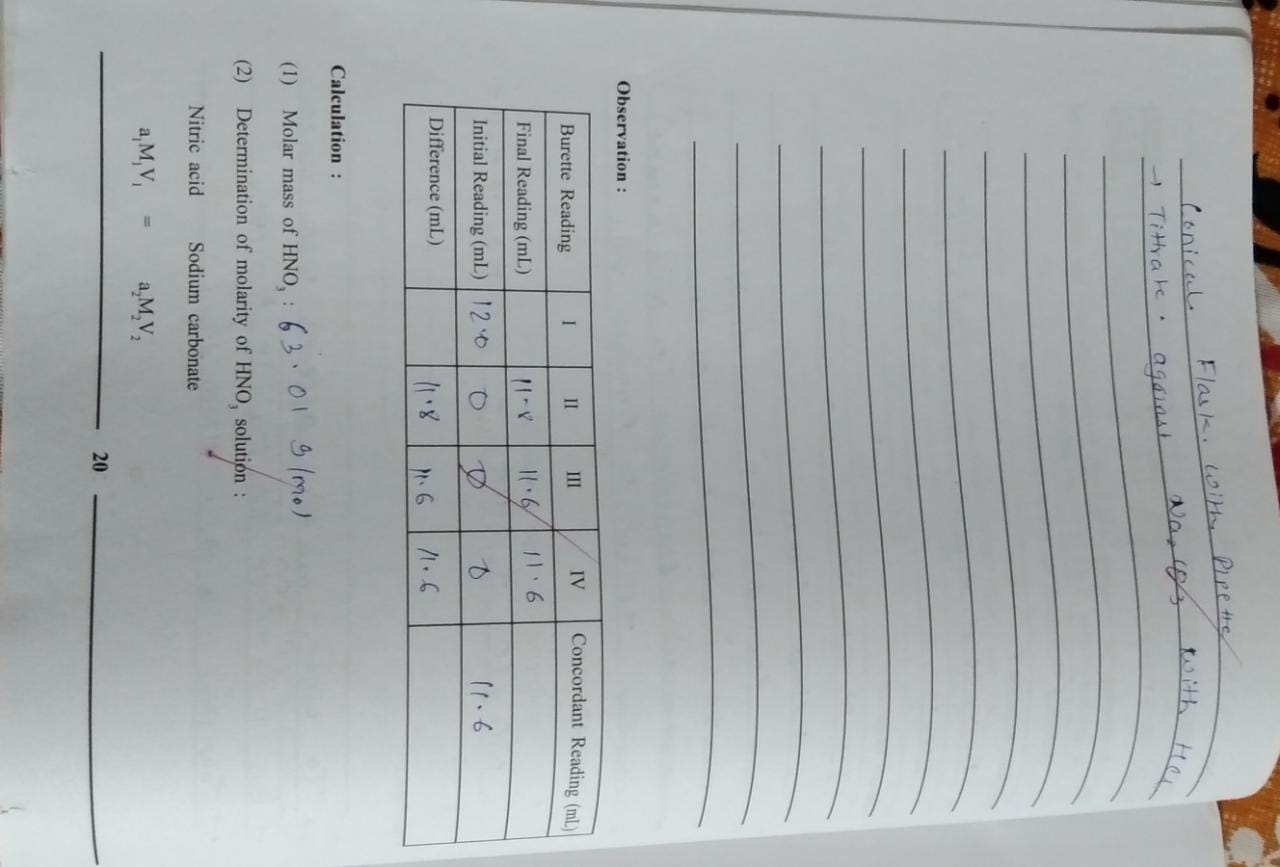 Conical Flask. with Pipette
→ Titrate. against Na2CO3 with HCl
Observation :
Burette Reading I II III IV Concordant Reading (mL)
Final Reading (mL) 11.8 11.6 11.6
Initial Reading (mL) 12.0 0 0 0 11.6
Difference (mL) 11.8 11.6 11.6
Calculation :
(1) Molar mass of HNO3 : 63.01 g/mol
(2) Determination of molarity of HNO3 solution :
Nitric acid Sodium carbonate
a1M1V1 = a2M2V2
20